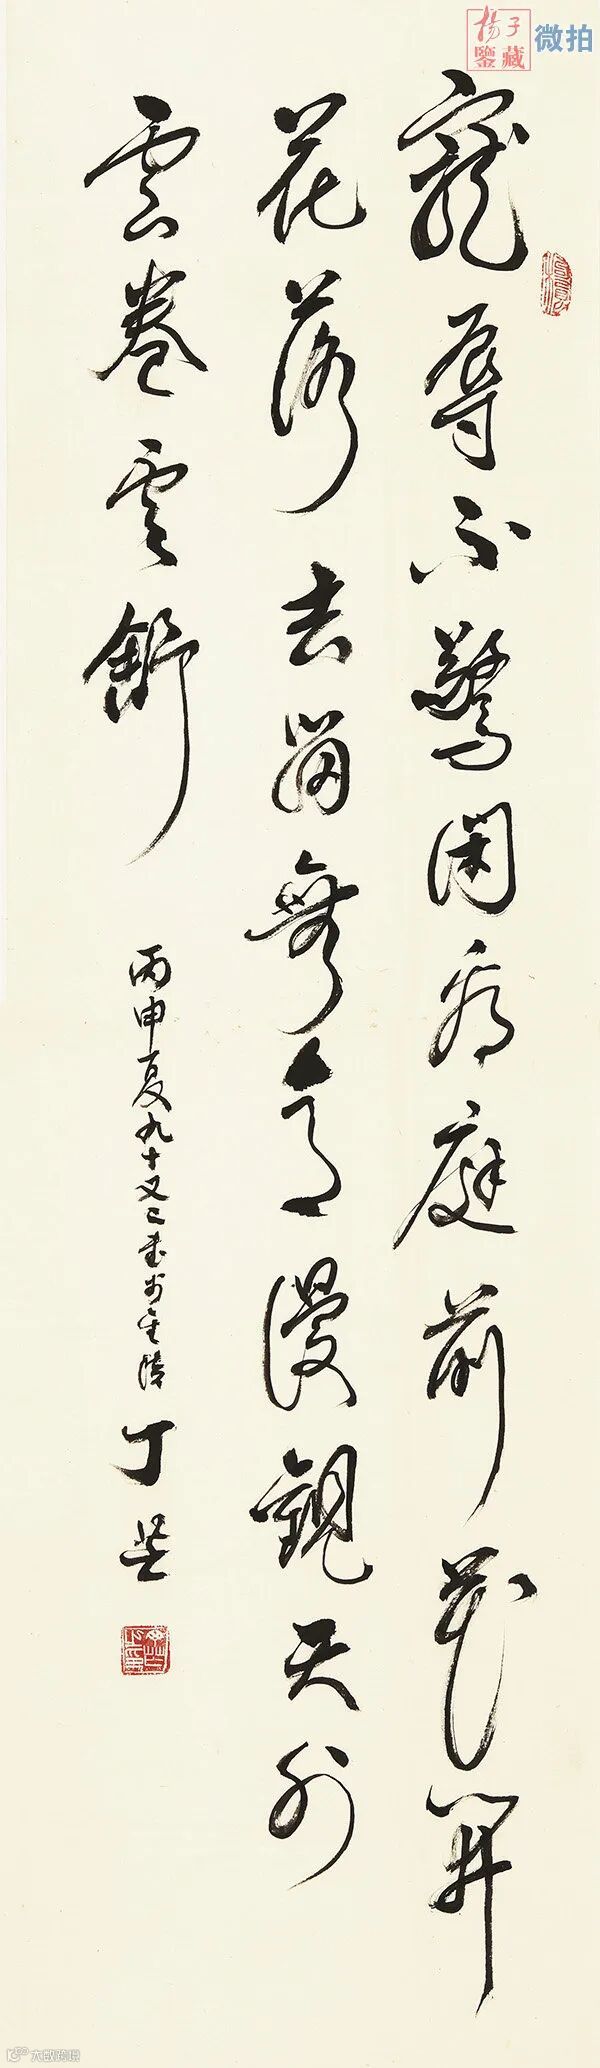 寵辱不驚閑看庭前花開
花落去留無意漫觀天外
雲卷雲舒
丙申夏九十又二書於金陵
丁芒
揚子鑒藏
微拍
大数跨境